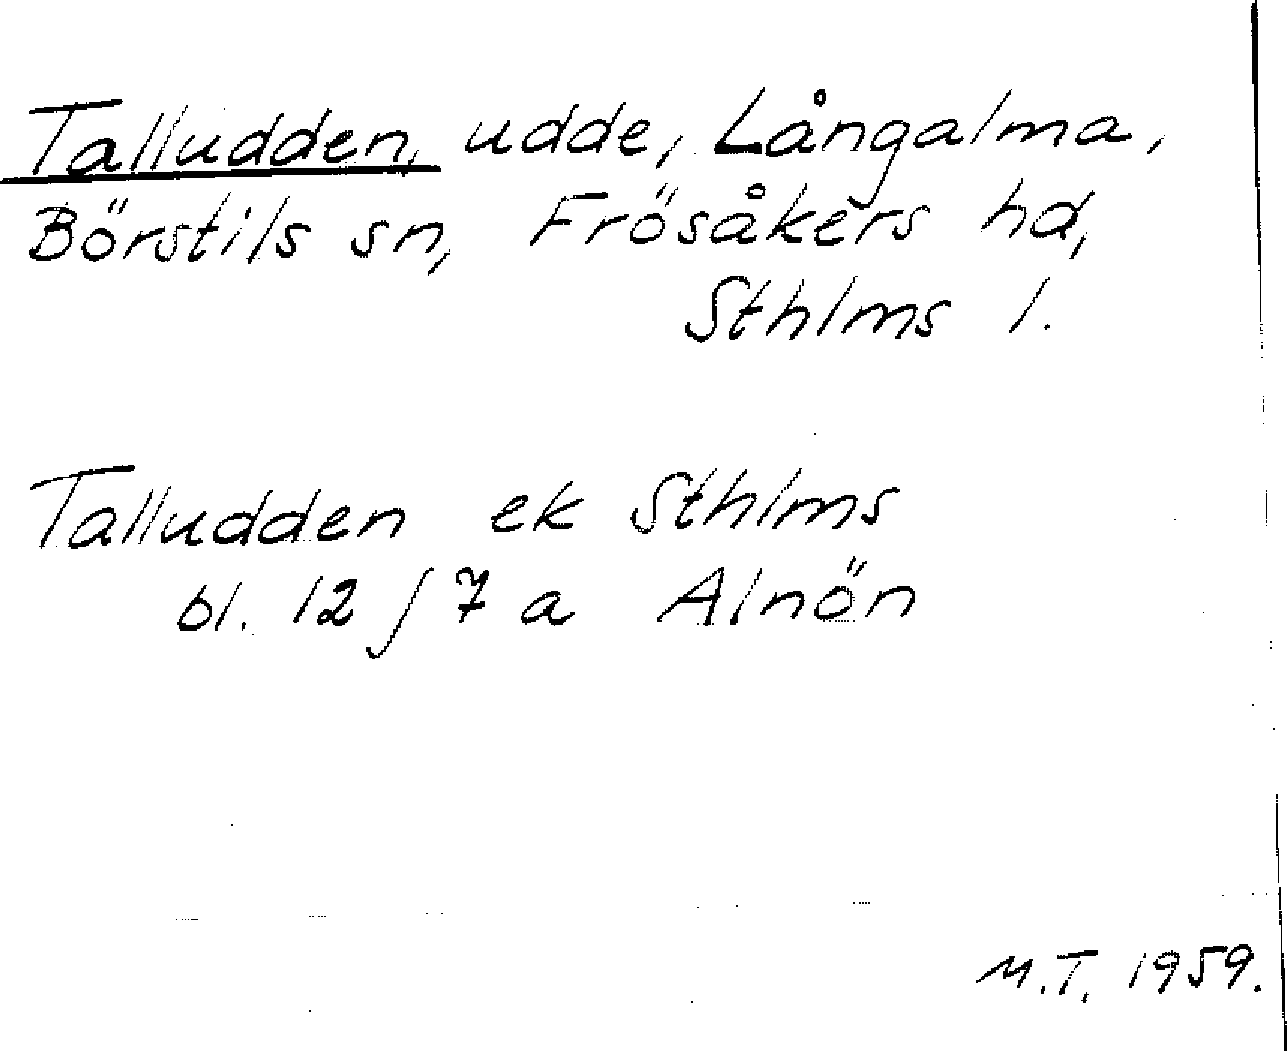 Talludden, udde, Långalma,
Börstils sn, Frösåkers hd,
Sthlms l.
Talludden ek Sthlms
bl. 12 / 7 a Alnön
M.T. 1959.